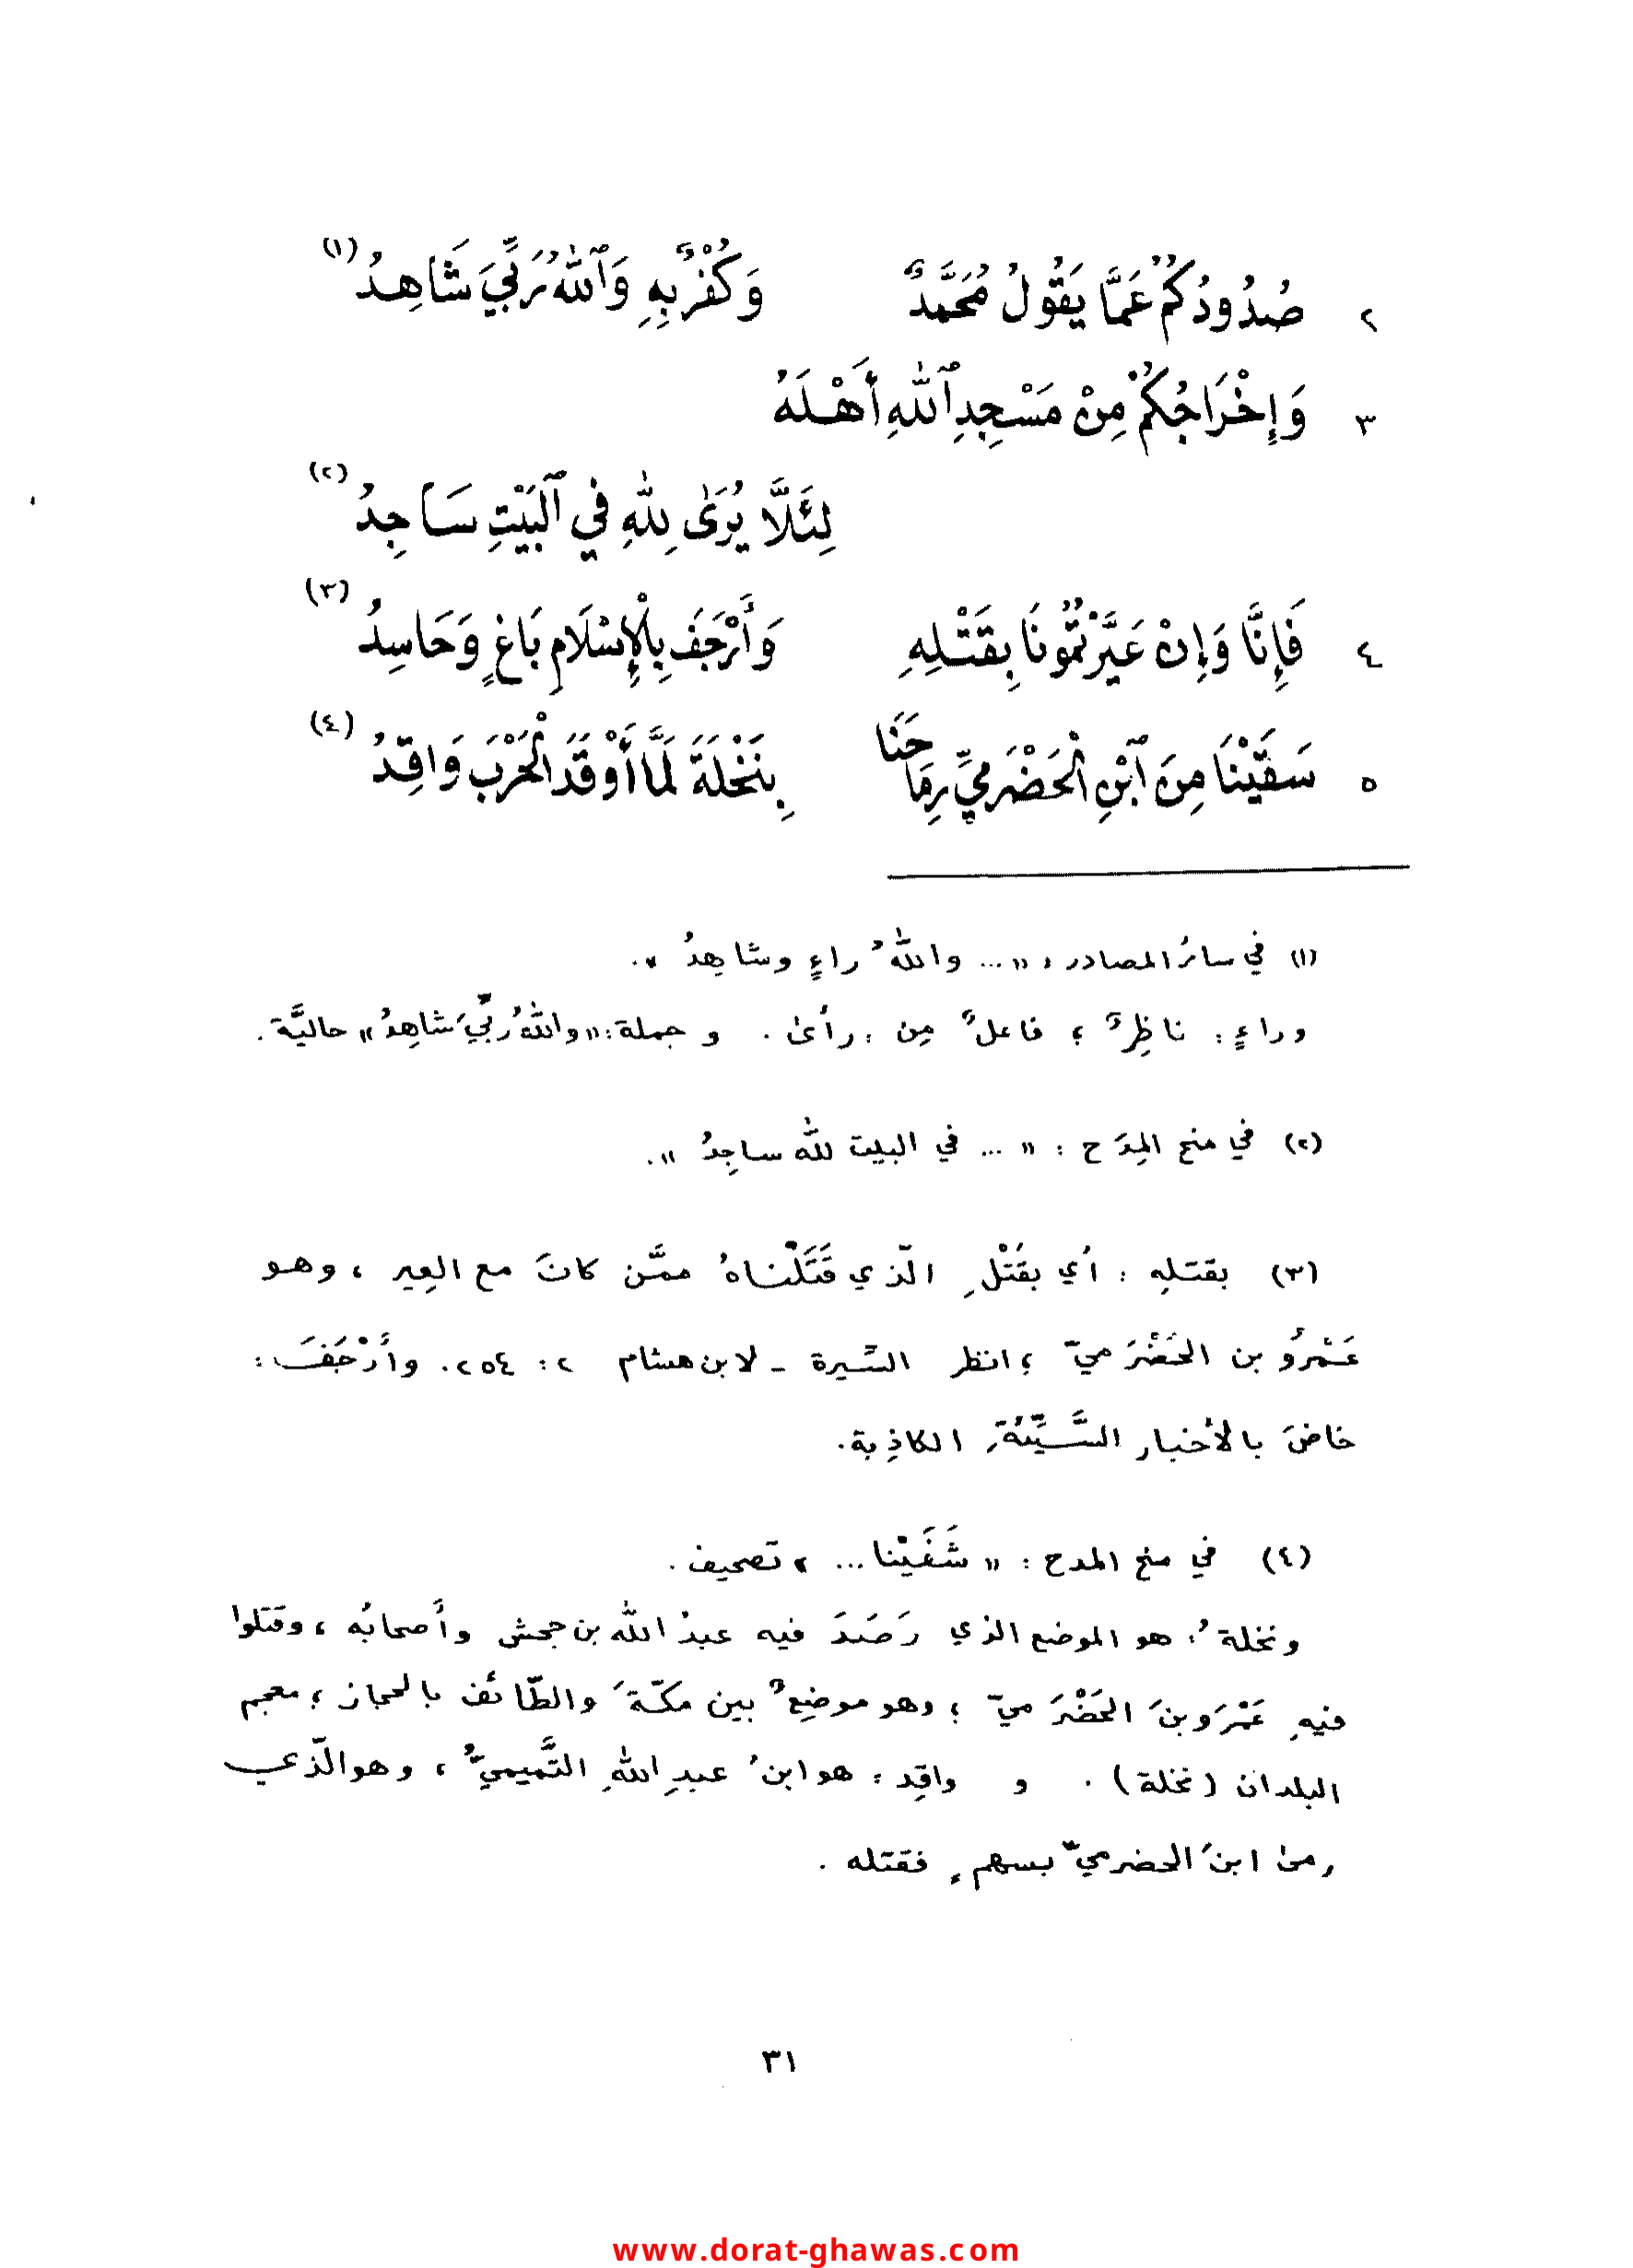 ٢ صُدُودُكُمُ عَمَّا يَقُولُ مُحَمَّدٌ وَكُفْرٌ بِهِ وَاللّٰهُ رَبِّيَ شَاهِدُ (١)
٣ وَإِخْرَاجُكُمْ مِنْ مَسْجِدِ اللّٰهِ أَهْلَهُ
لِئَلَّا يُرَىٰ لِلّٰهِ فِي الْبَيْتِ سَاجِدُ (٢)
٤ فَإِنَّا وَإِنْ عَيَّرْتُمُونَا بِقَتْلِهِ وَأَرْجَفَ بِالْإِسْلَامِ بَاغٍ وَحَاسِدُ (٣)
٥ سَقَيْنَا مِنَ ابْنِ الْحَضْرَمِيِّ رِمَاحَنَا بِنَخْلَةَ لَمَّا أَوْقَدَ الْحَرْبَ وَاقِدُ (٤)
(١) في سائر المصادر: «... واللّٰهُ راءٍ وشاهِدُ».
وراءٍ: ناظِرٌ؛ فاعلٌ مِن: رأىٰ. و جملة: «واللّٰهُ ربِّيَ شاهِدُ» حاليَّة.
(٢) في منح المِدَح: «... في البيت للّٰه ساجِدُ».
(٣) بقتلِهِ: أي بقَتْلِ الّذي قَتَلْناهُ ممَّن كانَ مع العِير، وهو
عَمْرُو بن الحَضْرَميّ؛ انظر السّيرة - لابن هشام ٢: ٢٥٤. وأَرْجَفَ:
خاضَ بالأخبار السَّيِّئةِ الكاذِبة.
(٤) في منح المدح: «شَفَيْنا...» تصحيف.
ونخلةُ: هو الموضع الذي رَصَدَ فيه عبدُ اللّٰه بن جحش وأَصحابُه، وقتلوا
فيهِ عَمْرَو بنَ الحَضْرَميّ؛ وهو موضِعٌ بين مكّةَ والطّائف بالحجاز؛ معجم
البلدان (نخلة). و واقِد: هو ابنُ عبدِ اللّٰهِ التَّميميُّ، وهو الّذي
رمىٰ ابنَ الحضرميّ بسهمٍ فقتله.
٣١
www.dorat-ghawas.com